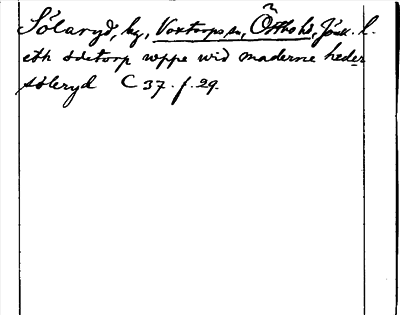 Sólaryd, by, Voxtorps sn, Östbo hd, Jönk. l.
eth ödetorp wppe wid maderne heder
söleryd C 37. f. 29.